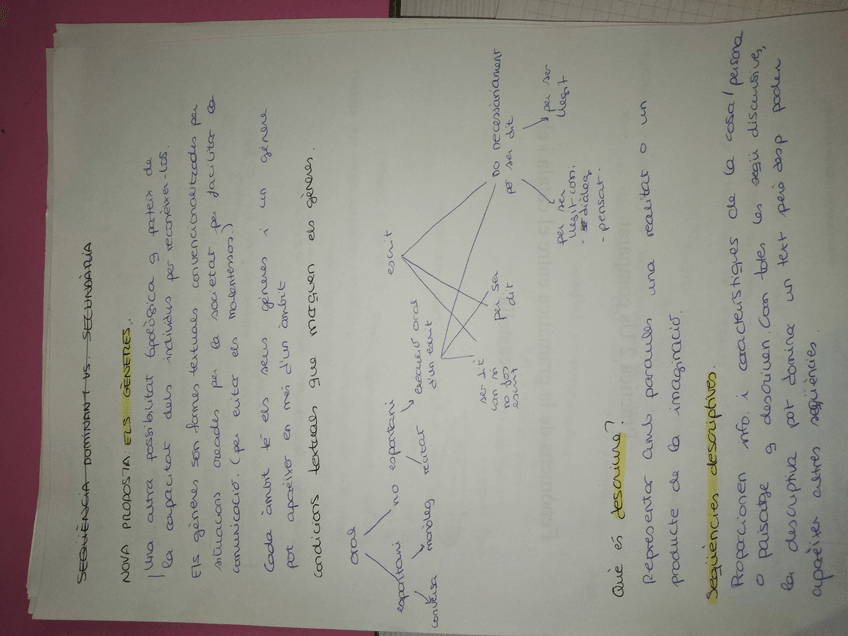 SEQÜÈNCIA DOMINANT VS. SECUNDÀRIA
NOVA PROPOSTA ELS GÈNERES.
Una altra possibilitat tipològica q parteix de
la capacitat dels individus per reconèixer-los.
Els gèneres són formes textuals convencionalitzades per
situacions creades per la societat per facilitar la
comunicació. (per evitar els malentesos.)
Cada àmbit té els seus gèneres i un gènere
pot aparèixer en més d'un àmbit
condicions textuals que marquen els gèneres.
oral
escrit
espontani
no espontani
conversa
monòleg
recitar
execució oral
d'un escrit
ser dit
com si
no fos
escrit
per ser
dit
no necessàriament
per ser dit
per ser
llegit com.
- diàleg
- pensat.
per ser
llegit
Què és descriure?
Representar amb paraules una realitat o un
producte de la imaginació.
Seqüències descriptives.
Proporcionen info. i característiques de la cosa/persona
o paisatge q descriuen. Com totes les seqü discursives,
la descriptiva pot dominar un text però desp poden
aparèixer altres seqüències.